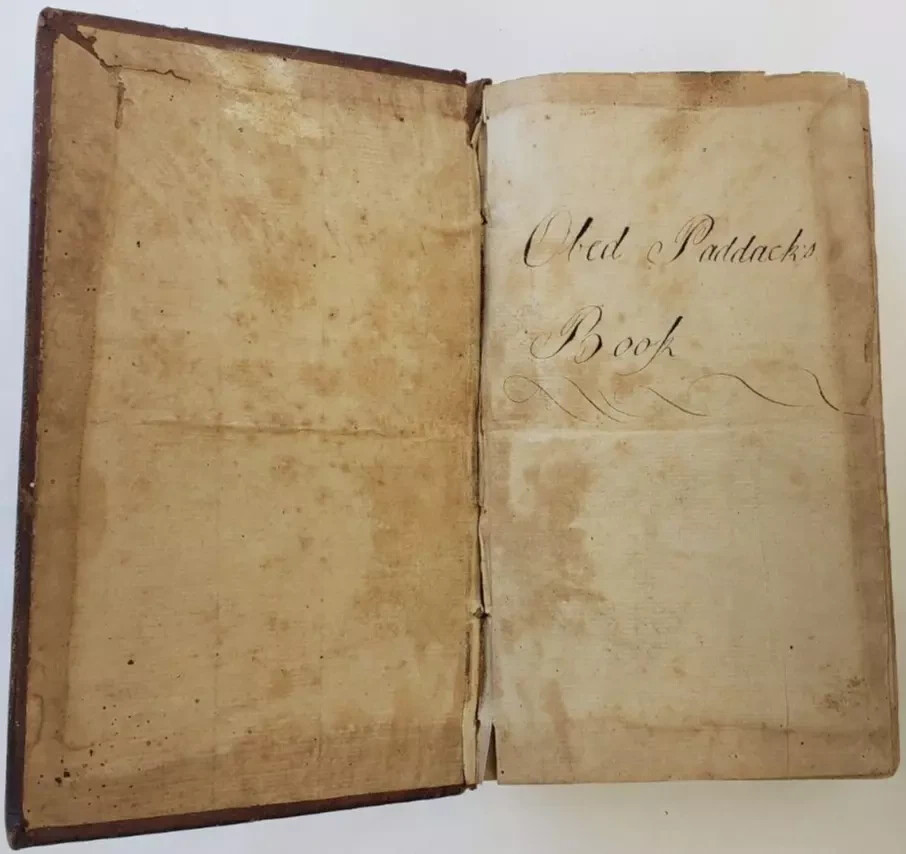 Obed Paddacks
Book